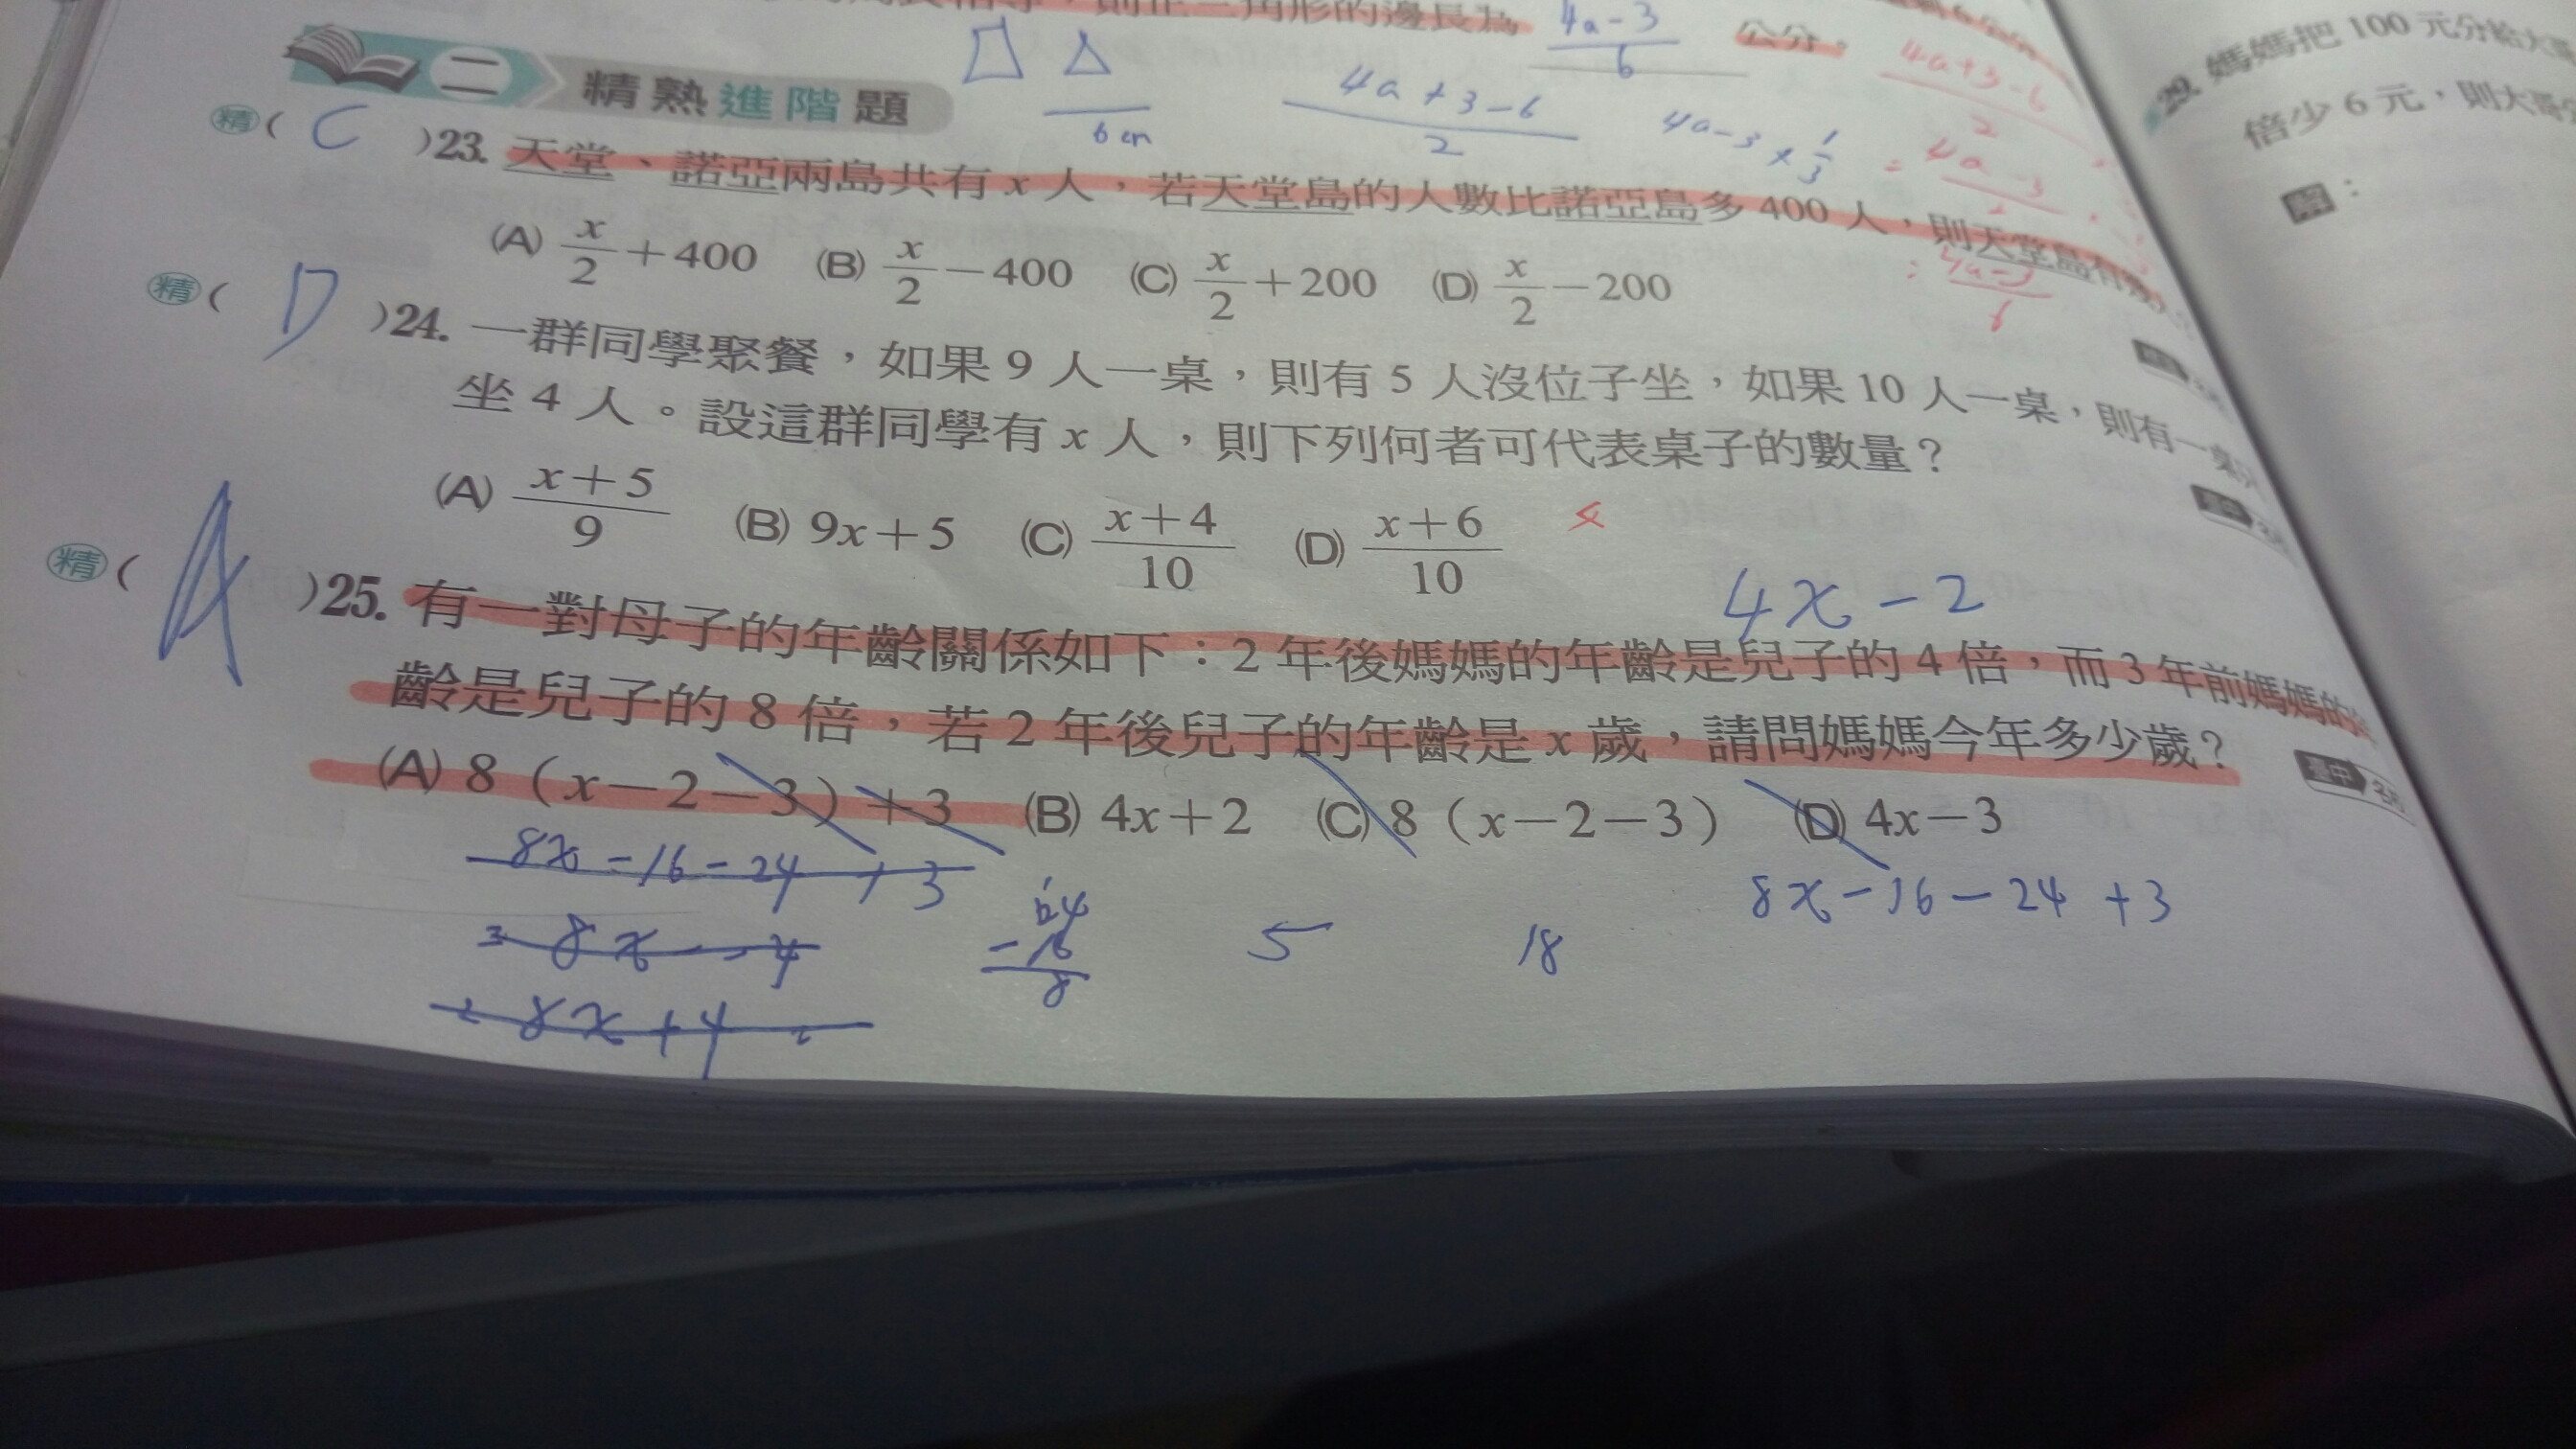 角形的邊長為 4a-3/6 公分。
二 精熟進階題
6cm
4a+3-6/2
4a-3×1/3
4a+3-6/2
= 4a-3
4a-3/6
精 ( C )23. 天堂、諾亞兩島共有 x 人，若天堂島的人數比諾亞島多 400 人，則天堂島有
(A) x/2+400 (B) x/2-400 (C) x/2+200 (D) x/2-200
精 ( D )24. 一群同學聚餐，如果 9 人一桌，則有 5 人沒位子坐，如果 10 人一桌，則有一桌
坐 4 人。設這群同學有 x 人，則下列何者可代表桌子的數量？
(A) x+5/9 (B) 9x+5 (C) x+4/10 (D) x+6/10
4x-2
精 ( A )25. 有一對母子的年齡關係如下：2 年後媽媽的年齡是兒子的 4 倍，而 3 年前媽媽的
齡是兒子的 8 倍，若 2 年後兒子的年齡是 x 歲，請問媽媽今年多少歲？
(A) 8（x-2-3）+3 (B) 4x+2 (C) 8（x-2-3） (D) 4x-3
8x-16-24+3
8x-16-24+3
5 18
8x+4
29. 媽媽把 100 元分給大
倍少 6 元，則大哥
解：